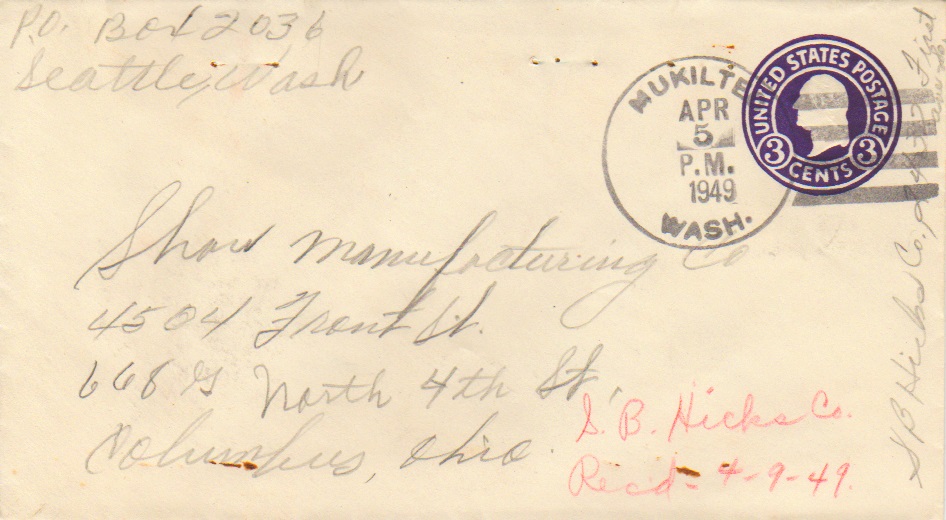 P.O. Box 2036
Seattle, Wash
MUKILTEO
APR
5
P.M.
1949
WASH.
UNITED STATES POSTAGE
3 CENTS 3
Shaw Manufacturing Co
4504 Front St.
668 North 4th St.
Columbus, Ohio
S. B. Hicks Co.
Rec'd - 4-9-49.
S B Hicks Co, First